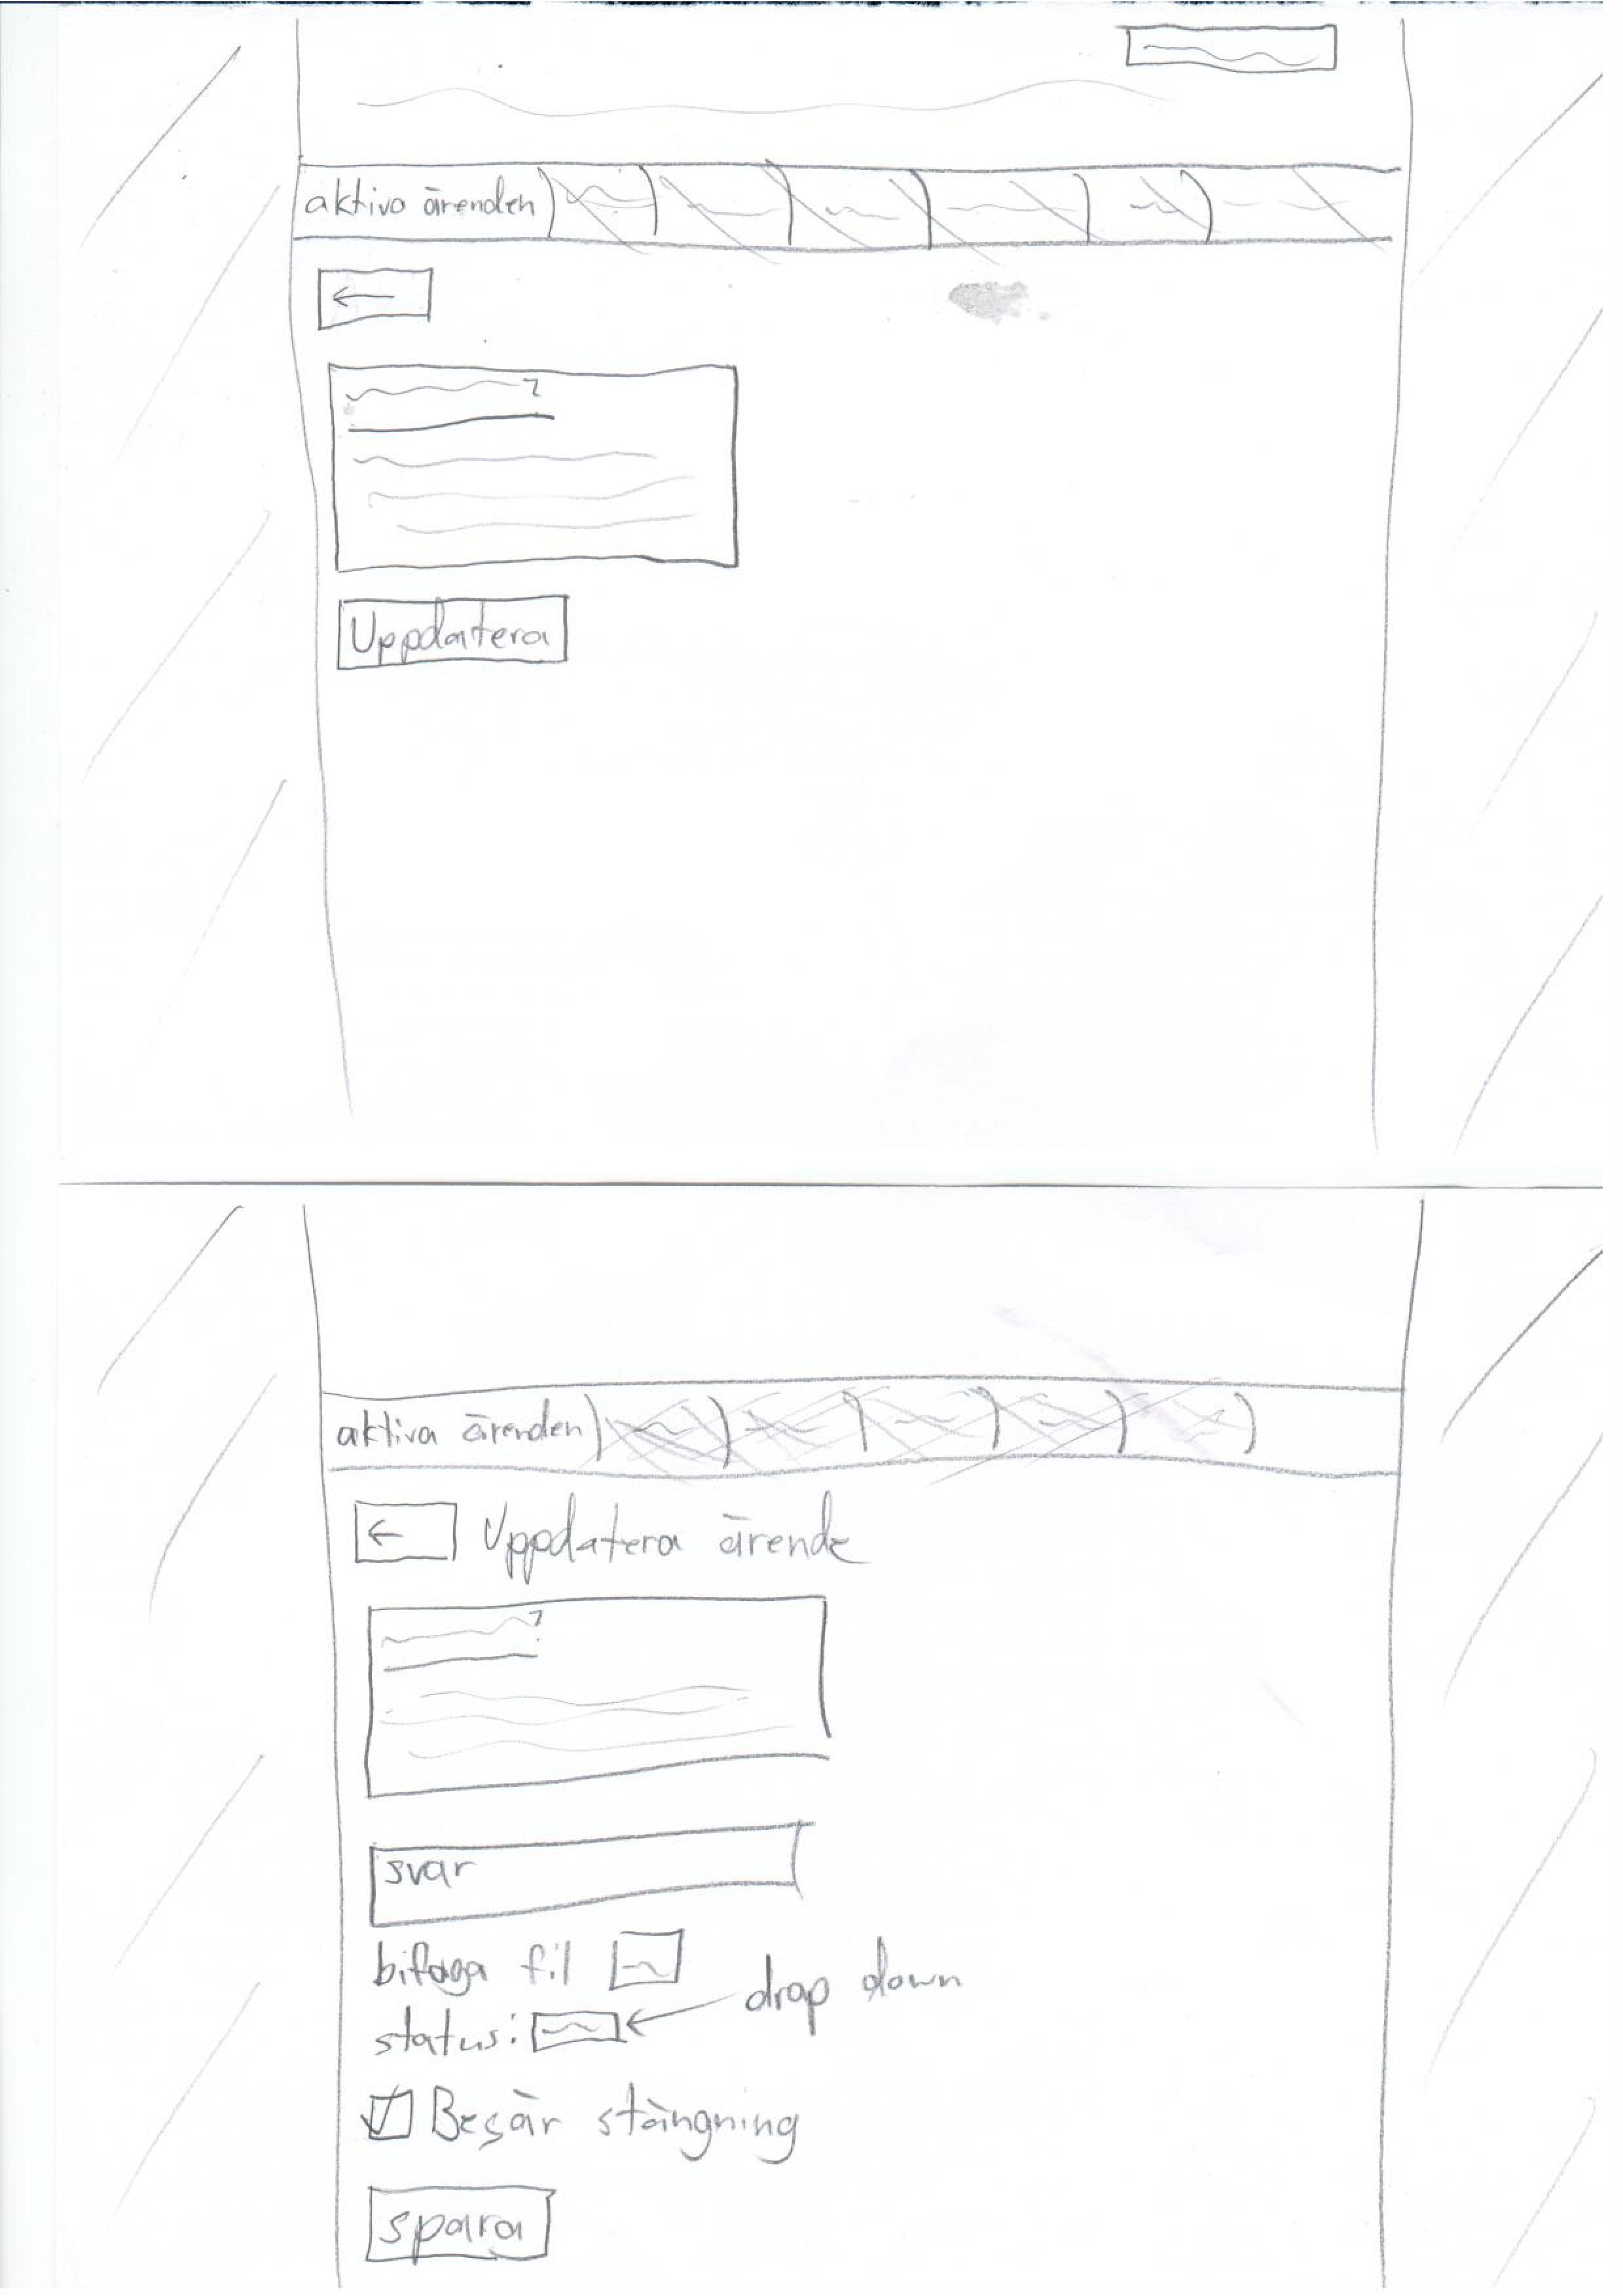 aktiva ärenden
Uppdatera
aktiva ärenden
Uppdatera ärende
svar
bifoga fil
drop down
status:
Begär stängning
spara